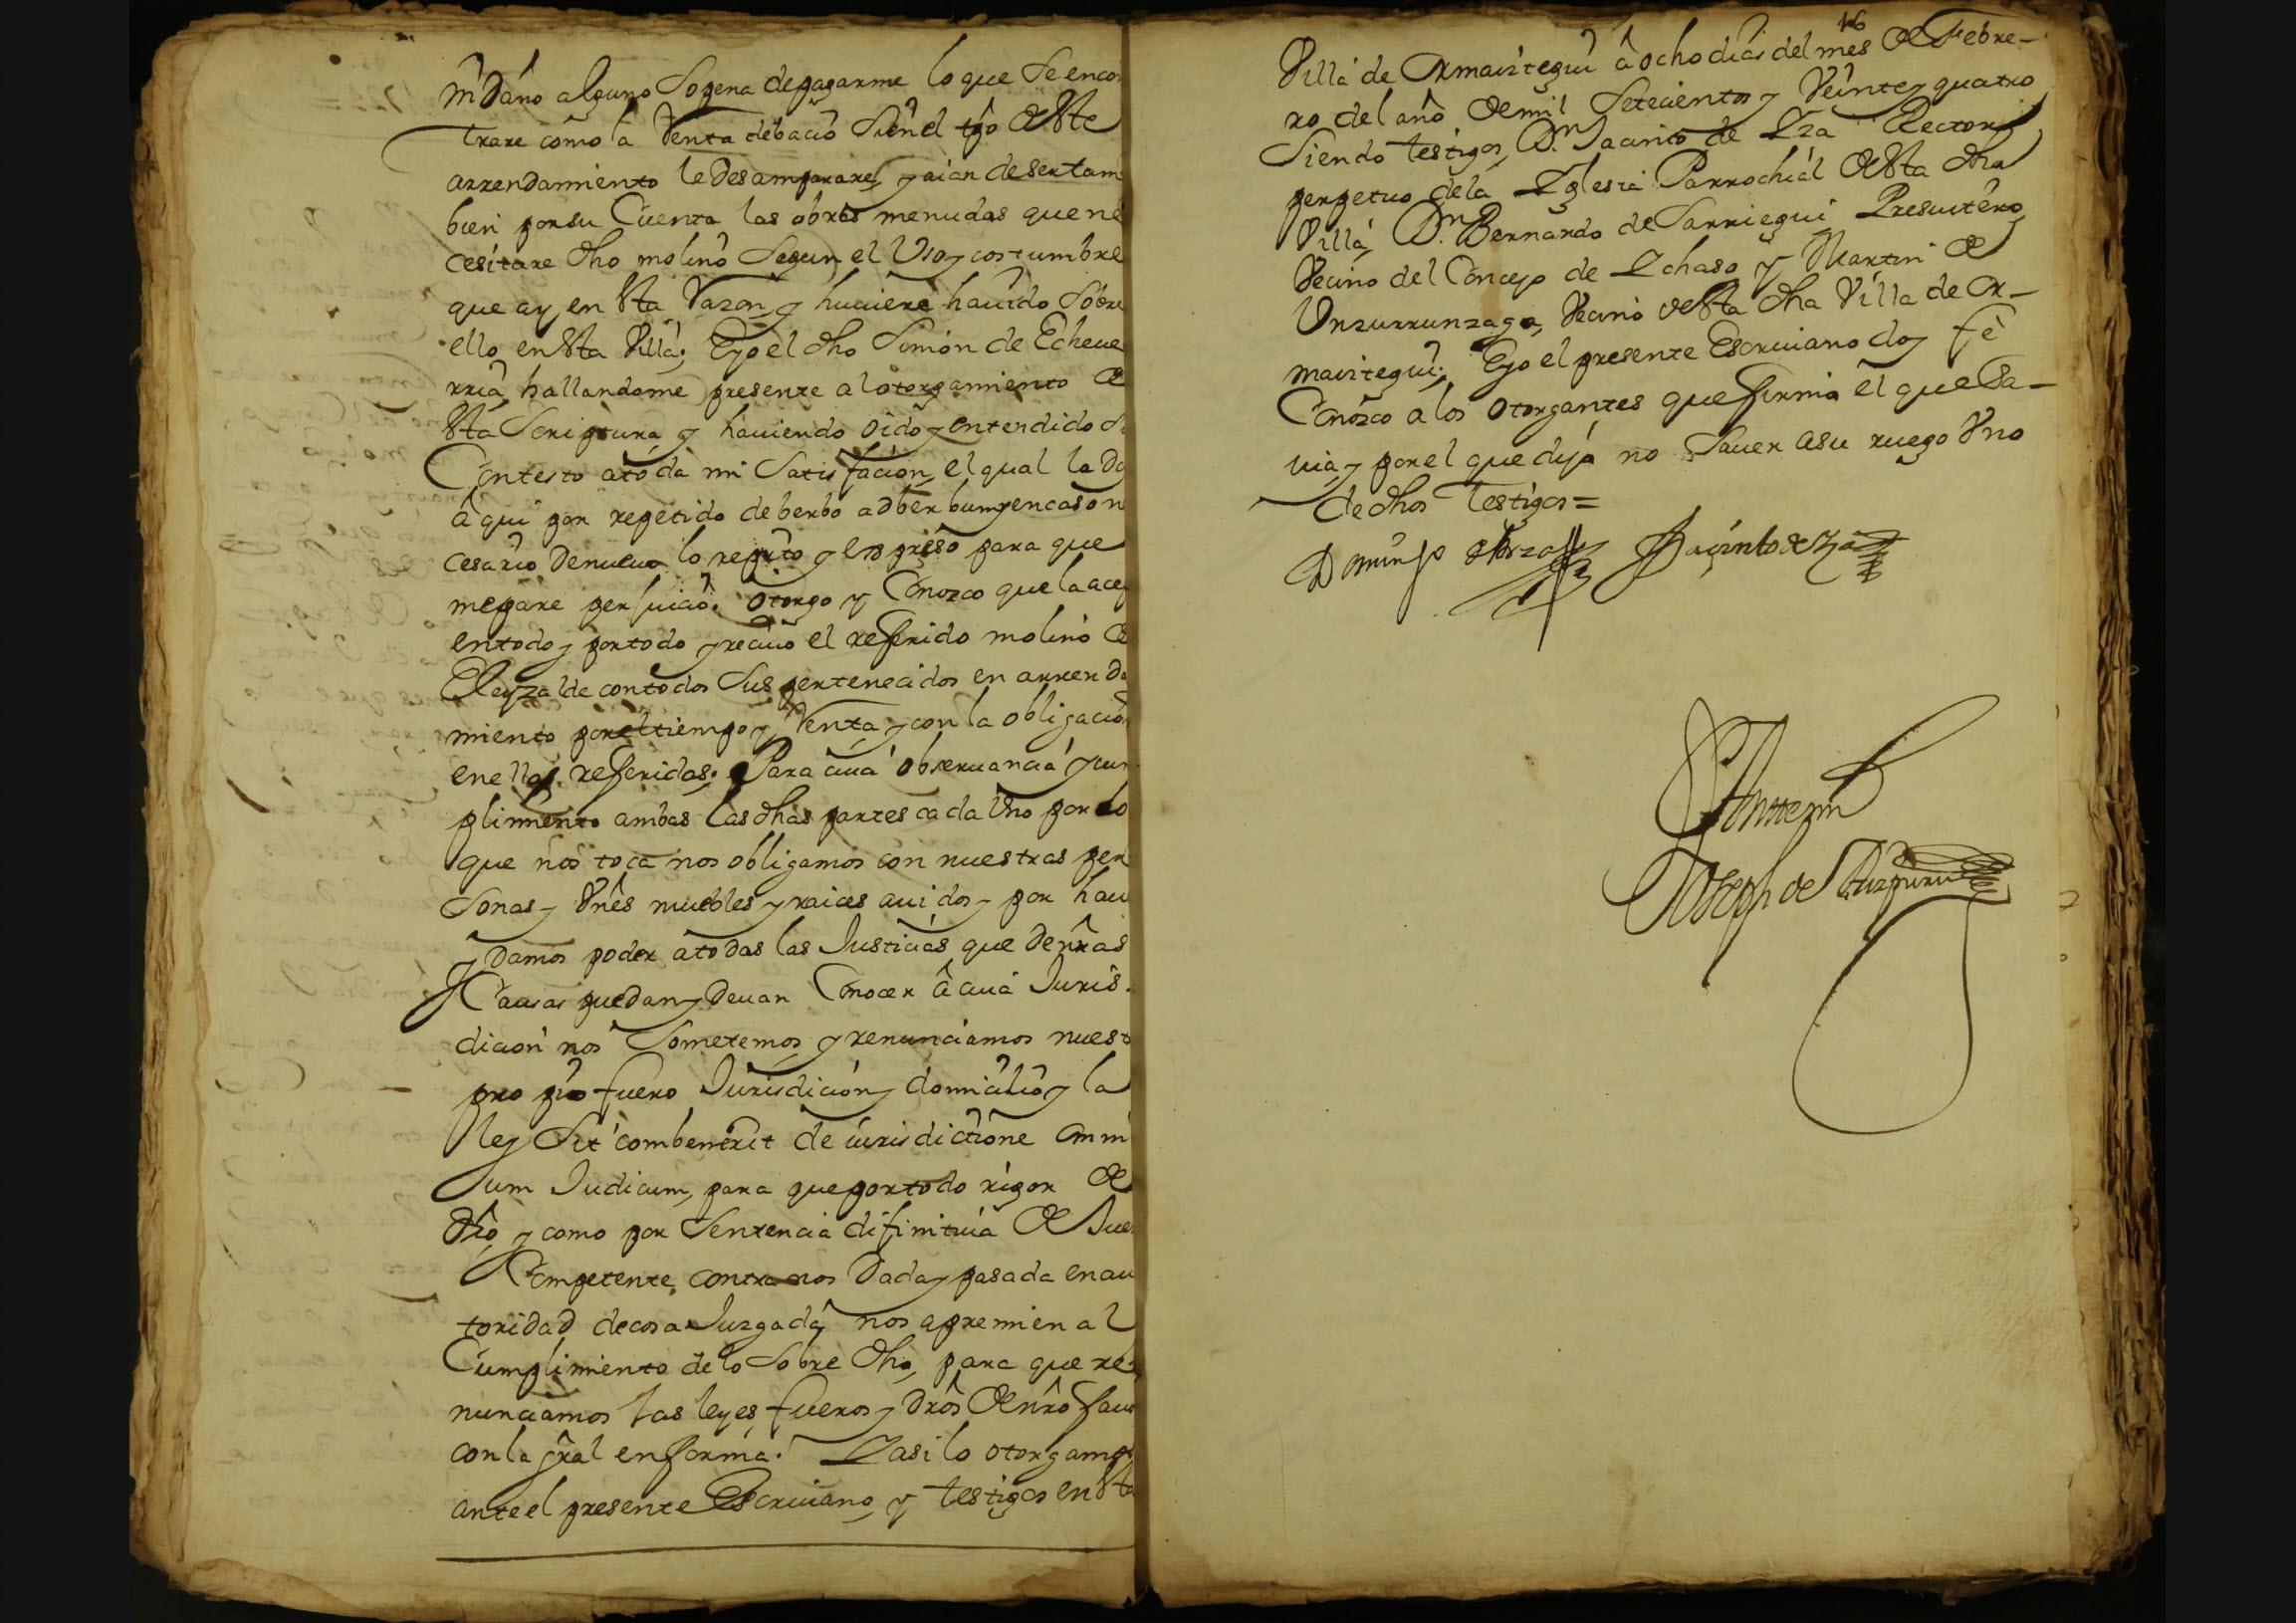 ni Dano alguno So pena de pagarme lo que Se encon
trare como la Renta de bacio Si en el tpo de este
arrendamiento le Desamparare, y aian de Ser tam
bien por su Cuenta las obras menudas que ne
cesitare dho molino Segun el Uso y costumbre
que ay en esta Razon y huuiere hauido Sobre
ello en esta Villa; E yo el dho Simon de Echeue
rria, hallandome presente al otorgamiento de
esta Scriptura y hauiendo oido y entendido
Contesto a toda mi Satisfacion, el qual la Doy
aqui por repetido de berbo adberbum y en caso ne
cesario Denueuo lo repito y expreso para que
me pare perjuicio. Otorgo y Conozco que la acep
en todo y por todo y reciuo el referido molino de
Eleyzalde con todos Sus pertenecidos en arrenda
miento por el tiempo y Renta y con la obligacion
en ellas referidas. Para cuia obseruancia y cum
plimiento ambas las dhas partes cada Uno por lo
que nos toca nos obligamos con nuestras per
Sonas y Vnes muebles y raices auidos y por hau
y Damos poder a todas las Justicias que de nras
Causas puedan y Deuan Conocer a cuia Juris
dicion nos Sometemos y renunciamos nuest
propio fuero Jurisdicion y domicilio y la
ley Sit combenerit de iurisdictione omni
um Judicum, para que por todo rigor de
dro y como por Sentencia difinitiua de Jue
Competente contra nos Dada y pasada en au
toridad de cosa Juzgada nos apremien al
Cumplimiento de lo Sobre dho, para que re
nunciamos las leyes fueros y dros de nro fauo
con la gral en forma. Y asi lo otorgamos
ante el presente Escriuano y testigos en esta
16
Villa de Ormaiztegui a ocho dias del mes de Febre-
ro del año de mil Setecientos y Veinte y quatro
Siendo testigos Dn Jacinto de Yza Rector
perpetuo de la Yglesia Parrochial de esta dha
Villa, Dn Bernardo de Sarriegui Presuitero
Vecino del Concejo de Ychaso y Martin de
Unzurrunzaga, Vecino de esta dha Villa de Or-
maiztegui; E yo el presente Escriuano doy fe
Conozco a los otorgantes que firmo el que Sa-
uia y por el que dijo no Sauer a su ruego Uno
de dhos testigos =
Jacinto de Yza
Ante mi
Joseph de Aizpuru